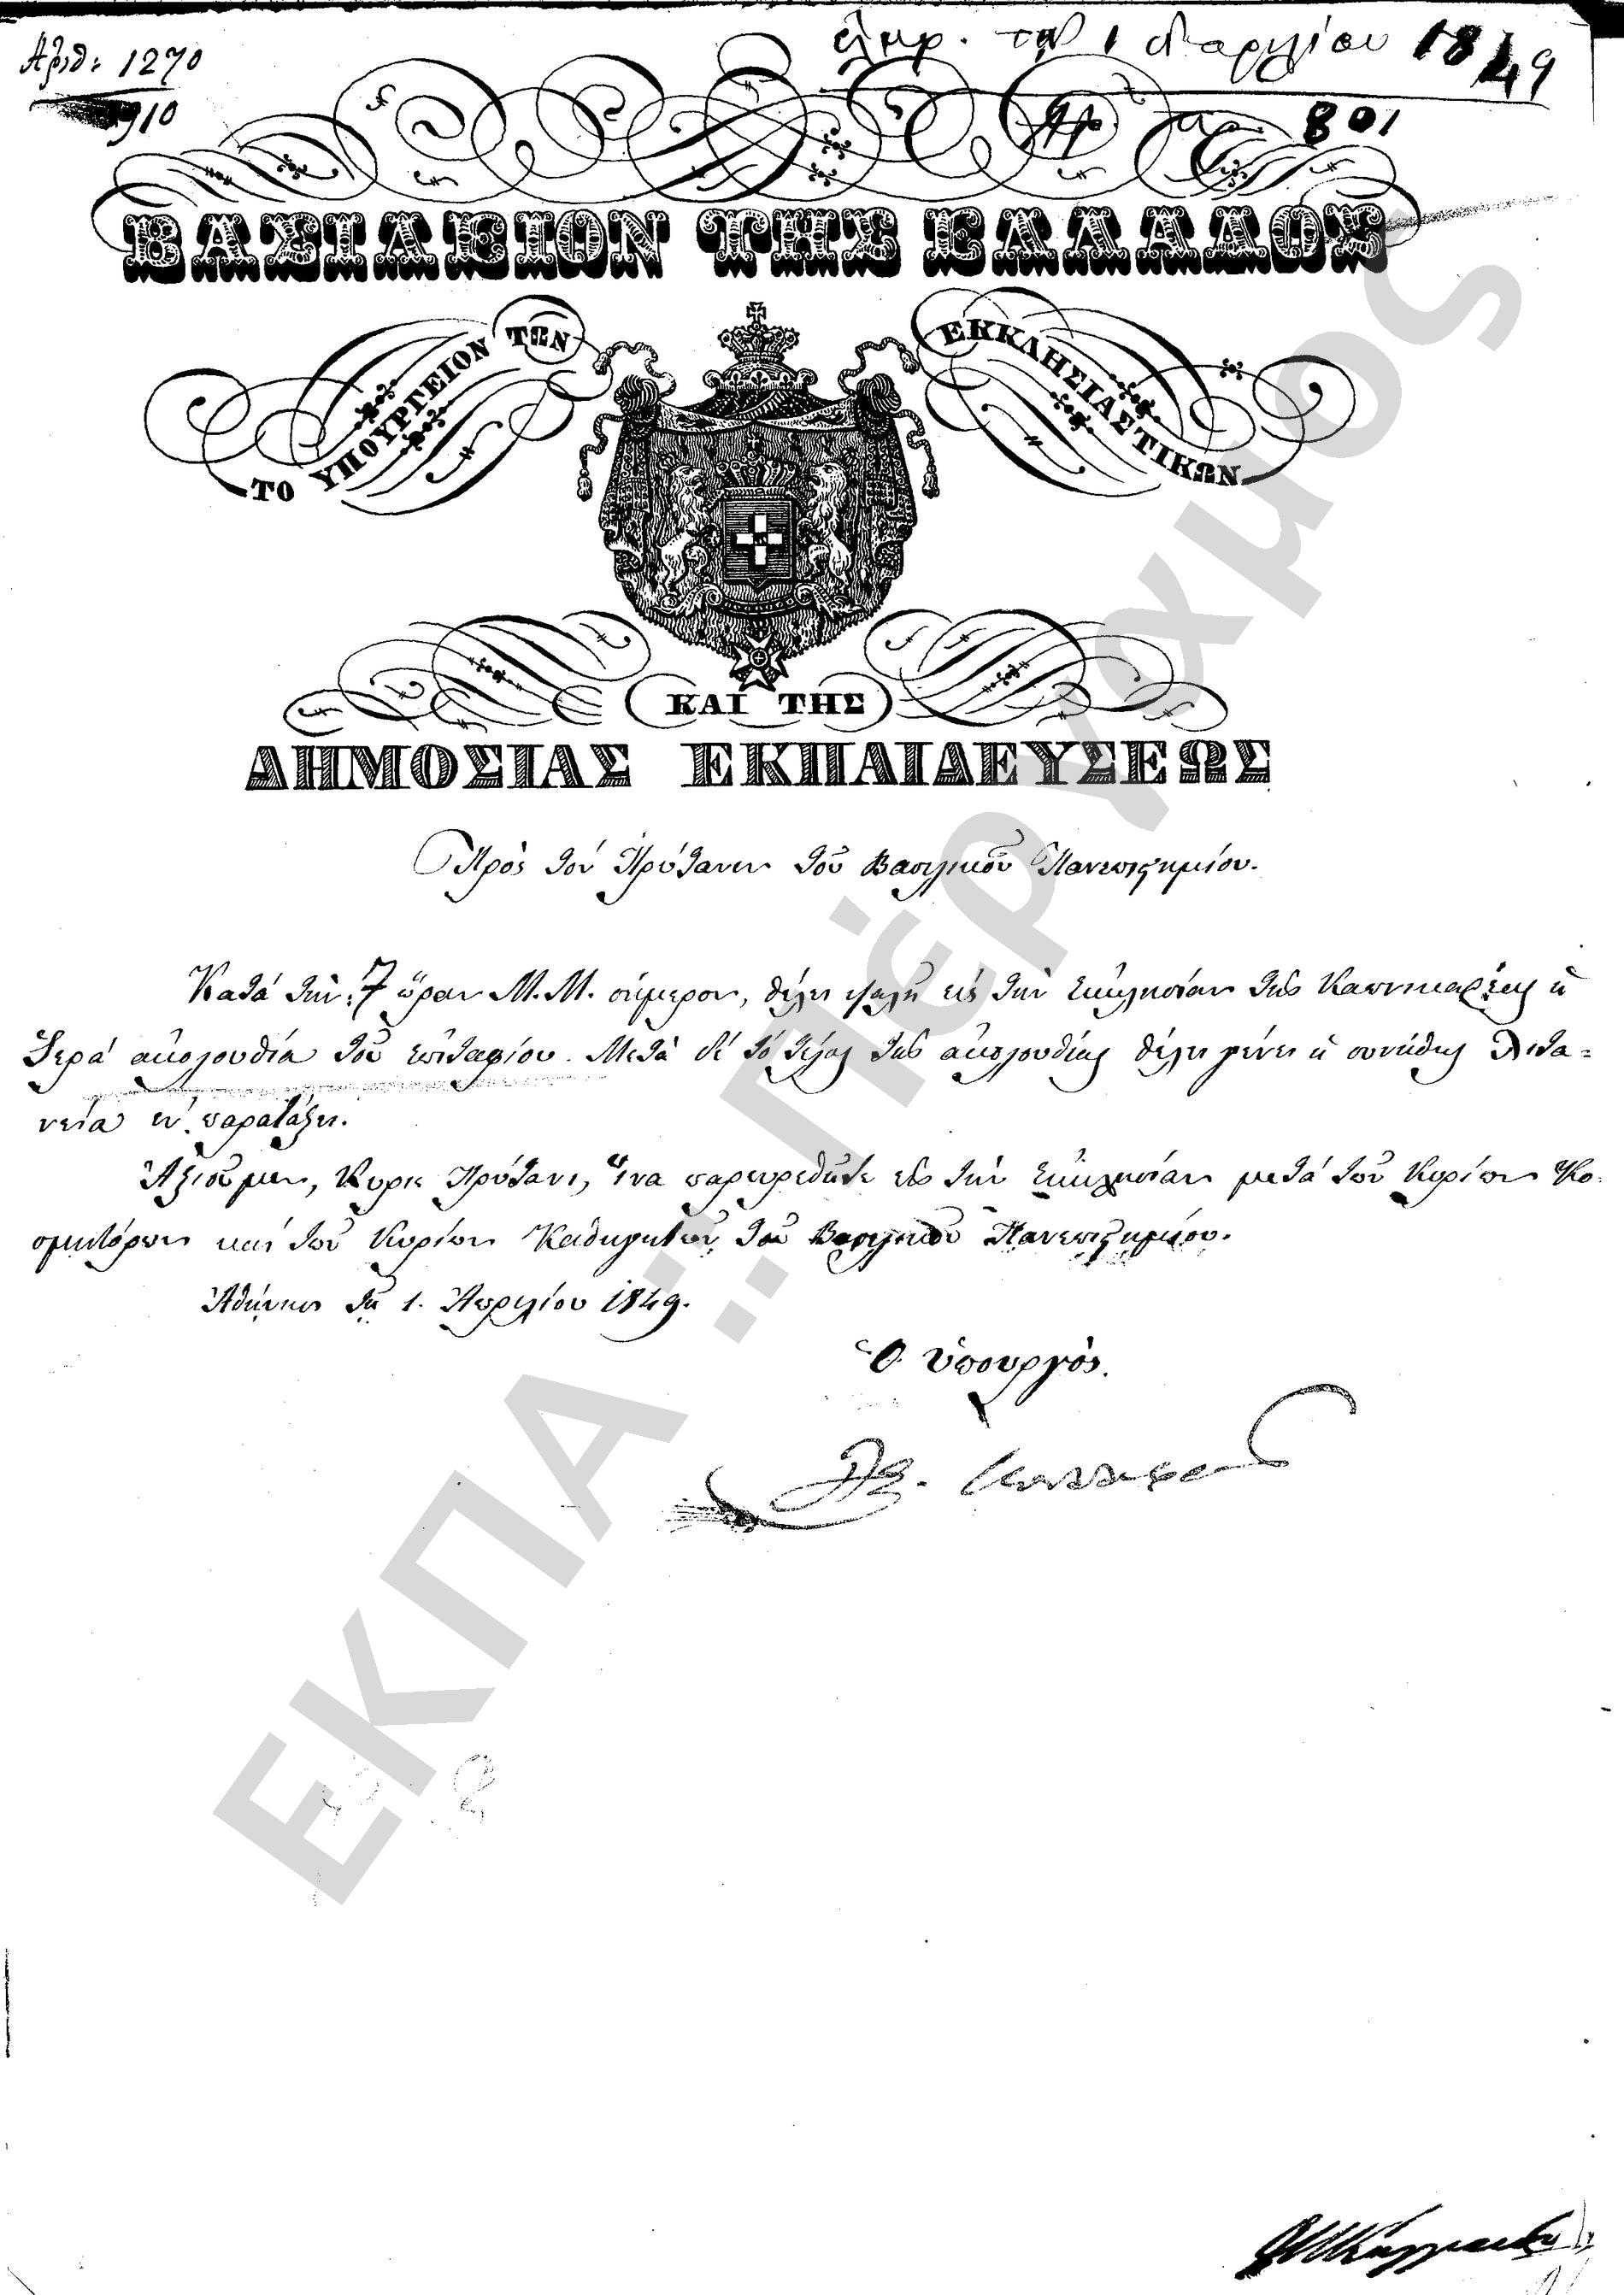 Ἀριθ: 1270
910
ἐλήφ. τὴν 1 Ἀπριλίου 1849
Αρ. πρ. 801
ΒΑΣΙΛΕΙΟΝ ΤΗΣ ΕΛΛΑΔΟΣ
ΤΟ ΥΠΟΥΡΓΕΙΟΝ ΤΩΝ ΕΚΚΛΗΣΙΑΣΤΙΚΩΝ
ΚΑΙ ΤΗΣ
ΔΗΜΟΣΙΑΣ ΕΚΠΑΙΔΕΥΣΕΩΣ
Πρὸς τὸν Πρύτανιν τοῦ Βασιλικοῦ Πανεπιστημίου.
Κατὰ τὴν 7 ὥραν Μ.Μ. σήμερον, θέλει ψαλῆ εἰς τὴν ἐκκλησίαν τῆς Καπνικαρέας ἡ
Ἱερὰ ἀκολουθία τοῦ ἐπιταφίου. Μετὰ δὲ τὸ τέλος τῆς ἀκολουθίας θέλει γένει ἡ συνήθης Λιτα=
νεία ἐν παρατάξει.
Ἀξιοῦμεν, Κύριε Πρύτανι, ἵνα παρευρεθῆτε εἰς τὴν ἐκκλησίαν μετὰ τῶν Κυρίων Κο.
σμητόρων καὶ τῶν Κυρίων Καθηγητῶν τοῦ Βασιλικοῦ Πανεπιστημίου.
Ἀθήνησι τῇ 1. Ἀπριλίου 1849.
Ὁ Ὑπουργὸς.
ΕΚΠΑ :: Πέργαμος